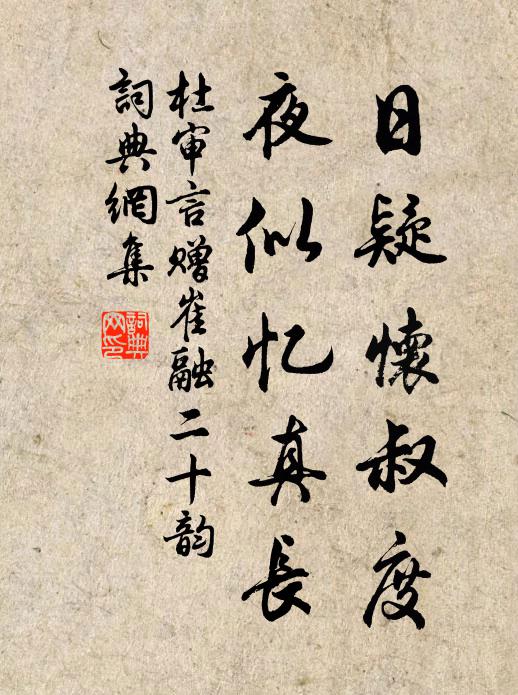 日疑懷叔度
夜似忆真長
杜审言赠崔融二十韵
詞典網集
詞典网印